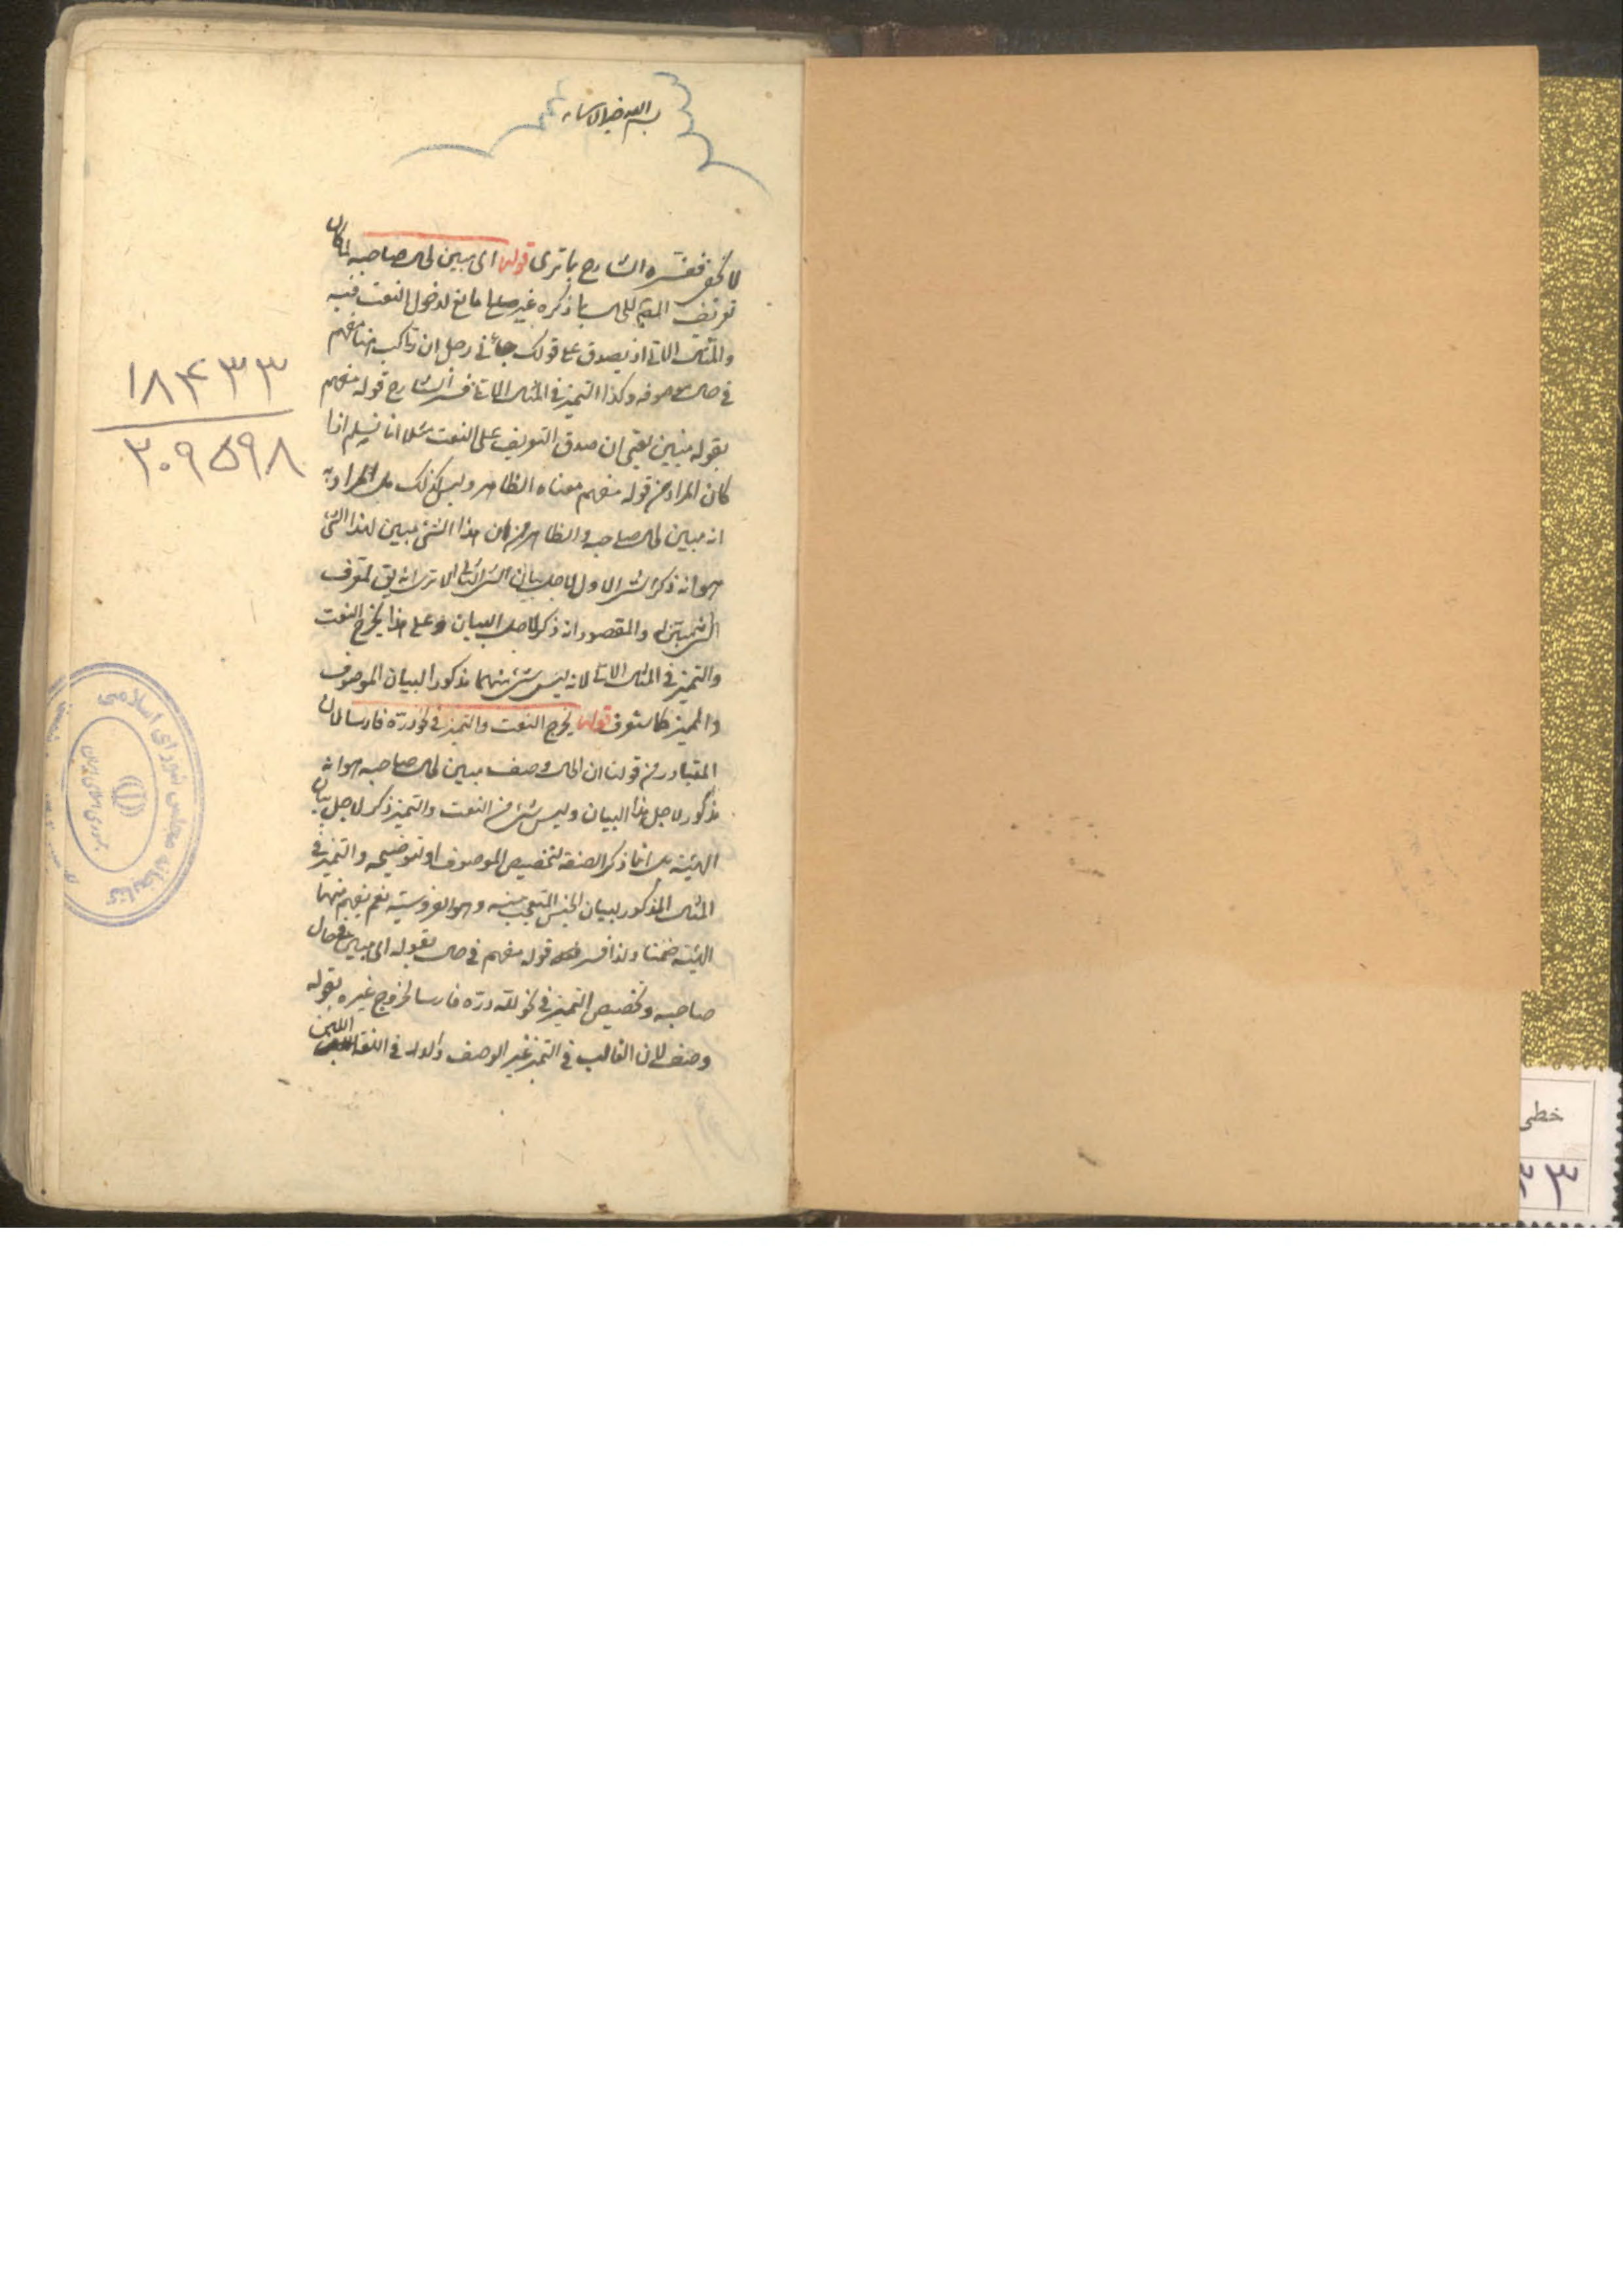 بسم الله خير الاسماء
لا يخفى ففسره الشارح بما ترى قوله اى مبين لحال صاحبه لما كان
تعريف المصنف للحال بما ذكره غير مانع لدخول النعت فيه
والمثال الاتى اذ يصدق على قولك جائنى رجل راكب انه مفهم
فى حال موصوفه وكذا التميز فى المثال الاتى فسر الشارح قوله مفهم
بقوله مبين يعنى ان صدق التعريف على النعت مثلا انما يسلم اذا
كان المراد من قوله مفهم معناه الظاهر وليس كذلك بل المراد به
انه مبين لحال صاحبه والظاهر من كون هذا الشئ مبين لهذا الشئ
هو انه ذكر الشئ الاول لاجل بيان الشئ الثانى الا ترى انه يق لمعرف
الشئ مبينه والمقصود انه ذكر لاجل البيان وعلى هذا يخرج النعت
والتميز فى المثال الاتى لانه ليس شئ منهما مذكورا لبيان الموصوف
والمميز كما ستعرف قوله يخرج النعت والتميز فى نحو لله دره فارسا لان
المتبادر من قولنا ان الحال وصف مبين لحال صاحبه هو انه
مذكور لاجل هذا البيان وليس شئ من النعت والتميز ذكر لاجل بيان
الهيئة بل انما ذكر الصفة لتخصيص الموصوف او لتوضيحه والتميز فى
المثال المذكور لبيان الجنس المتعجب منه وهو الفروسية نعم يفهم منهما
الهيئة ضمنا ولذا فسر قوله مفهم فى حال بقوله اى مبين لحال
صاحبه وتخصيص التميز فى نحو لله دره فارسا لخروج غيره بقوله
وصف لان الغالب فى التميز غير الوصف
۱۸۴۳۳
۳۰۹۵۹۸
کتابخانه مجلس شورای اسلامی
جمهوری اسلامی ایران
خطی
۳۳